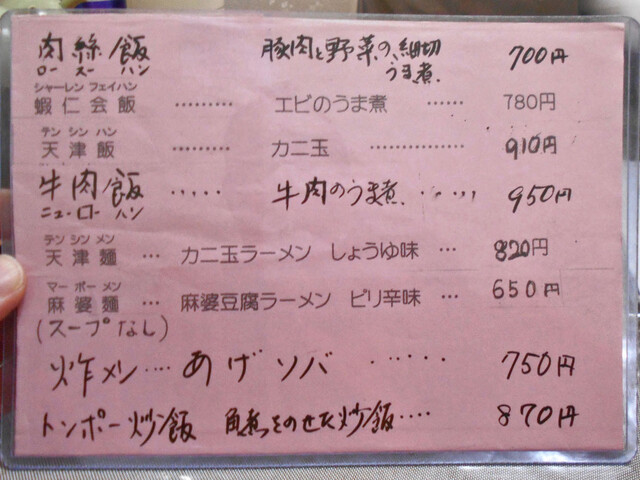 肉絲飯 豚肉と野菜の細切うま煮. 700円
ロースーハン
シャーレン フェイハン
蝦仁会飯 ……… エビのうま煮 …… 780円
テン シン ハン
天津飯 ……… カニ玉 …………… 910円
牛肉飯 ..... 牛肉のうま煮. ..... 950円
ニューローハン
テン シン メン
天津麺 … カニ玉ラーメン しょうゆ味 … 820円
マー ボー メン
麻婆麺 … 麻婆豆腐ラーメン ピリ辛味 … 650円
(スープなし)
炸メン.... あげソバ ...... 750円
トンポー炒飯 角煮をのせた炒飯.... 870円